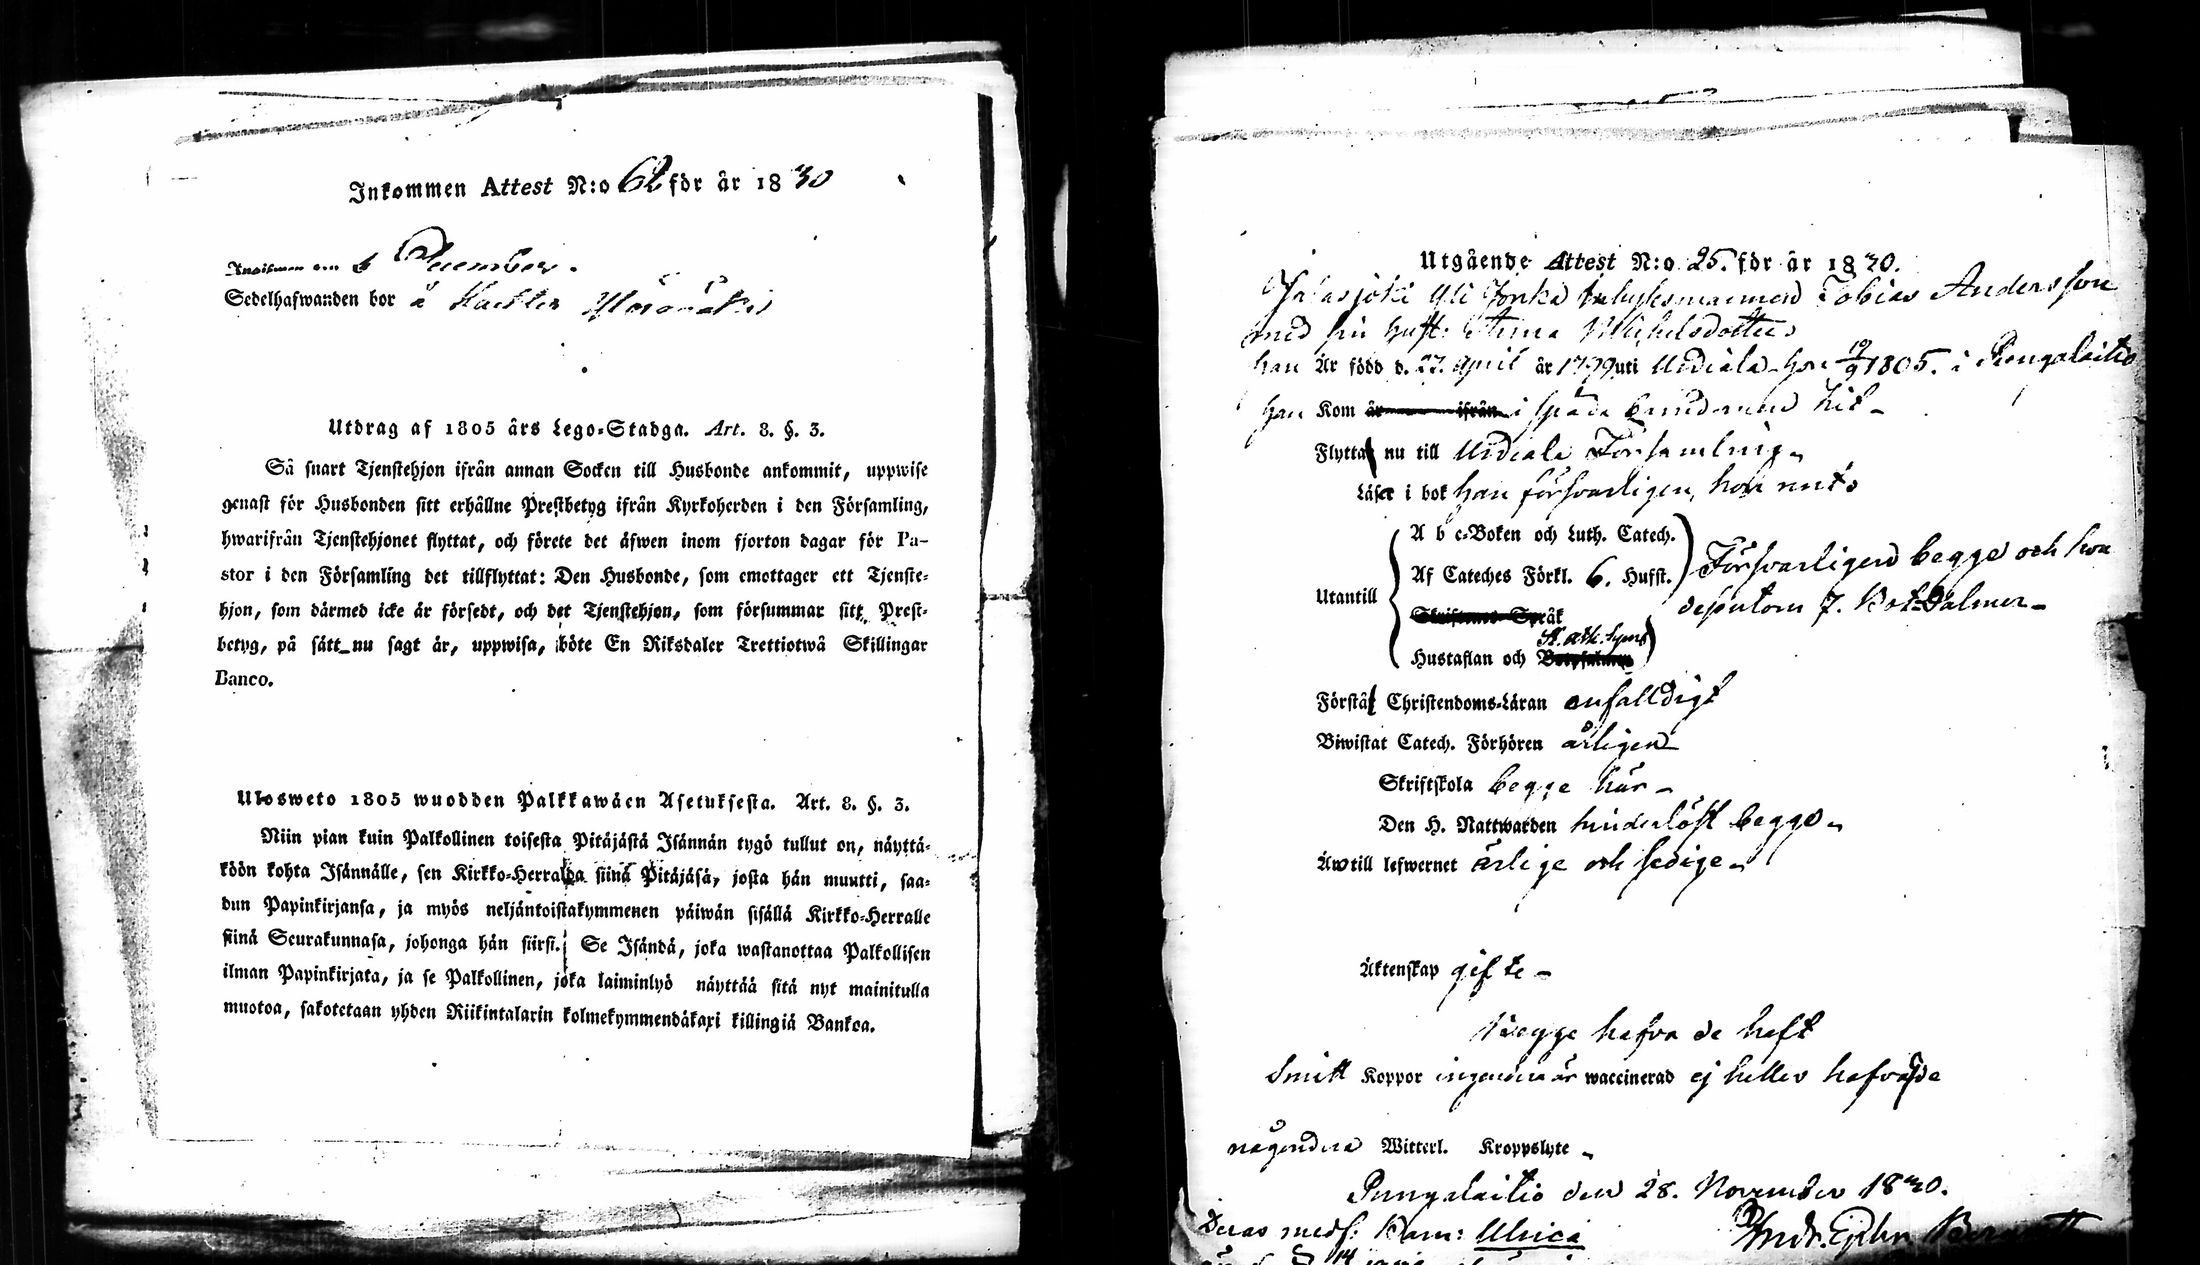 Inkommen Attest N:o 62 för år 1830
6 December.
Sedelhafwanden bor å
Utdrag af 1805 års Lego-Stadga. Art. 8. §. 3.
Så snart Tjenstehjon ifrån annan Socken till Husbonde ankommit, uppwise
genast för Husbonden sitt erhållne Prestbetyg ifrån Kyrkoherden i den Församling,
hwarifrån Tjenstehjonet flyttat, och förete det äfwen inom fjorton dagar för Pa-
stor i den Församling det tillflyttat: Den Husbonde, som emottager ett Tjenste-
hjon, som därmed icke är försedt, och det Tjenstehjon, som försummar sitt Prest-
betyg, på sätt nu sagt är, uppwisa, böte En Riksdaler Trettiotwå Skillingar
Banco.
Ulosweto 1805 wuodden Palkkawäen Asetuksesta. Art. 8. §. 3.
Niin pian kuin Palkollinen toisesta Pitäjästä Isännän tygö tullut on, näyttä-
köön kohta Isännälle, sen Kirkko-Herralda siinä Pitäjäsä, josta hän muutti, saa-
dun Papinkirjansa, ja myös neljäntoistakymmenen päiwän sisällä Kirkko-Herralle
siinä Seurakunnasa, johonga hän siirsi. Se Isändä, joka wastanottaa Palkollisen
ilman Papinkirjata, ja se Palkollinen, joka laiminlyö näyttää sitä nyt mainitulla
muotoa, sakotetaan yhden Riikintalarin kolmekymmendäkaxi killingiä Bankoa.
Utgående Attest N:o 25. för år 1830.
Jalasjoki Yli Jonka Inhysesmannen Tobias Andersson
med sin hust: Anna Michelsdotter
han Är född d. 27. April år 1799 uti Urdiala hon 19/9 1805. i Pungalaitio
han Kom år ifrån i späda barndomen hit
Flytta nu till Urdiala Församling
Läser i bok han försvarligen, hon nait
Utantill
A b c-Boken och Luth. Catech.
Af Cateches Förkl. 6. Hufst. Försvarligen begge och hon
dessutom 7. Bot-Psalmer
Skriftenes Språk
St. ath. Symb
Hustaflan och Botpsalmer
Förstå Christendoms-Läran enfalldigt
Biwistat Catech. Förhören årligen
Skriftskola begge här
Den H. Nattwarden hinderlöst begge
Äw till lefwernet ärlige och sedige
Äktenskap gifte
Begge hafva de haft
Smitt Koppor ingendera är waccinerad ej heller hafva de
någondera Witterl. Kroppslyte
Pungalaitio den 28. November 1830.
Deras medf: Barn: Ulrica
Andr. Gust.